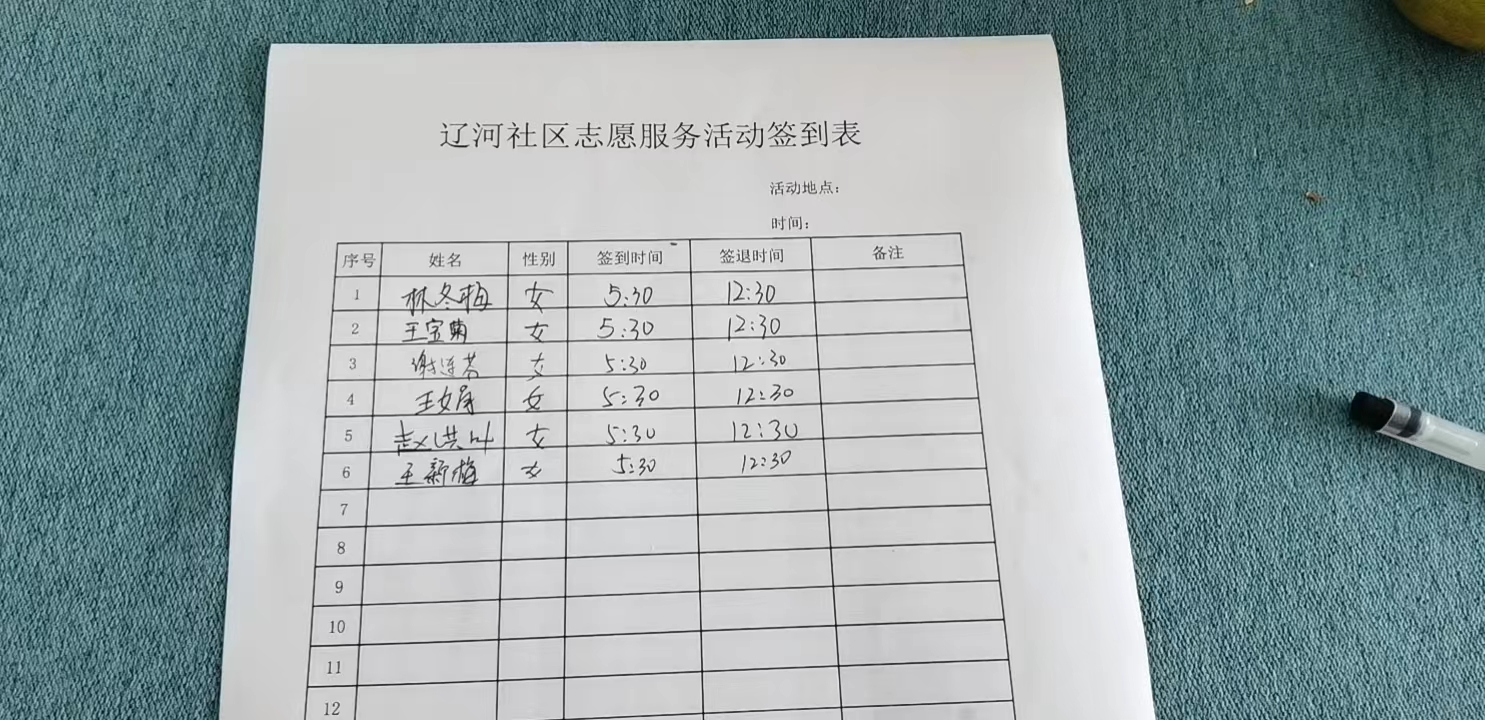 辽河社区志愿服务活动签到表
活动地点：
时间：
序号 姓名 性别 签到时间 签退时间 备注
1 林冬梅 女 5:30 12:30
2 王宝菊 女 5:30 12:30
3 谢连芳 女 5:30 12:30
4 王女 女 5:30 12:30
5 赵洪叶 女 5:30 12:30
6 王新梅 女 5:30 12:30
7
8
9
10
11
12